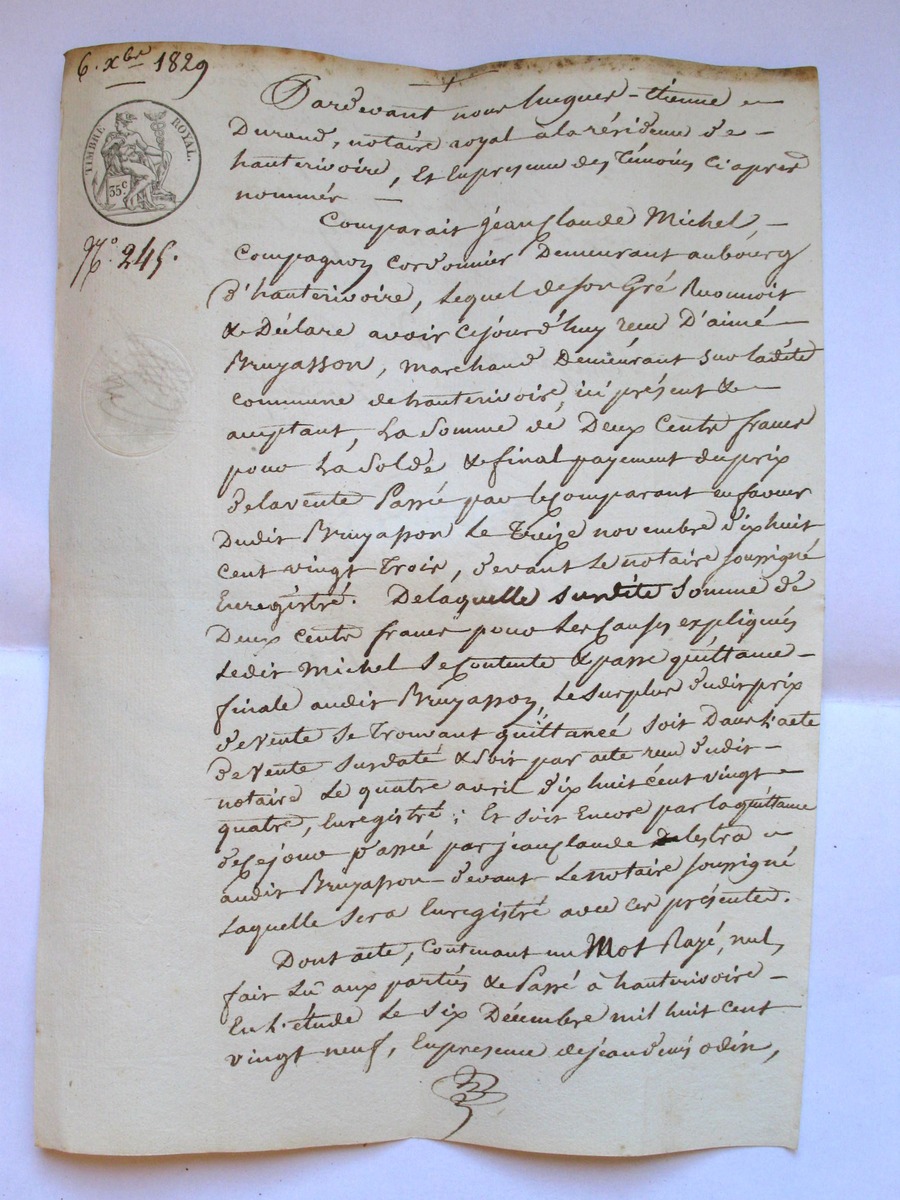 6. xbre 1829
TIMBRE ROYAL.
35c
N.o 245.
Pardevant nous hugues-étienne
Durand, notaire royal à la résidence de
hauterivoire, Et En presence des Témoins Ci après
nommés
Comparait jean Claude Michel,
Compagnon Cordonnier Demeurant au bourg
d'hauterivoire, Lequel de son Gré Reconnoit
& Déclare avoir cejourd'huy reçu D'aimé
Bruyasson, marchand Demeurant sur ladite
commune de hauterivoire, ici présent &
acceptant, La Somme de Deux Cents francs
pour La Solde & final payement du prix
de la vente Passée par le comparant en faveur
Dudit Bruyasson Le Treize novembre dix huit
cent vingt Trois, devant Le notaire soussigné
Enregistré. De laquelle susdite Somme de
Deux cents francs pour Les Causes expliqués
Ledit Michel Se Contente & passe quittance
finale audit Bruyasson, Le surplus dudit prix
de Vente Se Trouvant quittancé soit Dans L'acte
de Vente susdaté & soit par acte reçu dudit
notaire Le quatre avril dix huit cent vingt
quatre, Enregistré; Et soit Encore par la quittance
de ce jour passée par jean Claude Delestra
audit Bruyasson devant Le notaire soussigné
Laquelle Sera Enregistré avec ces présentes.
Dont acte, Contenant un Mot Rayé, nul,
fait Lû aux parties & Passé à hauterivoire
En L'étude Le six Décembre mil huit cent
vingt neuf, En presence de jean denis odin,